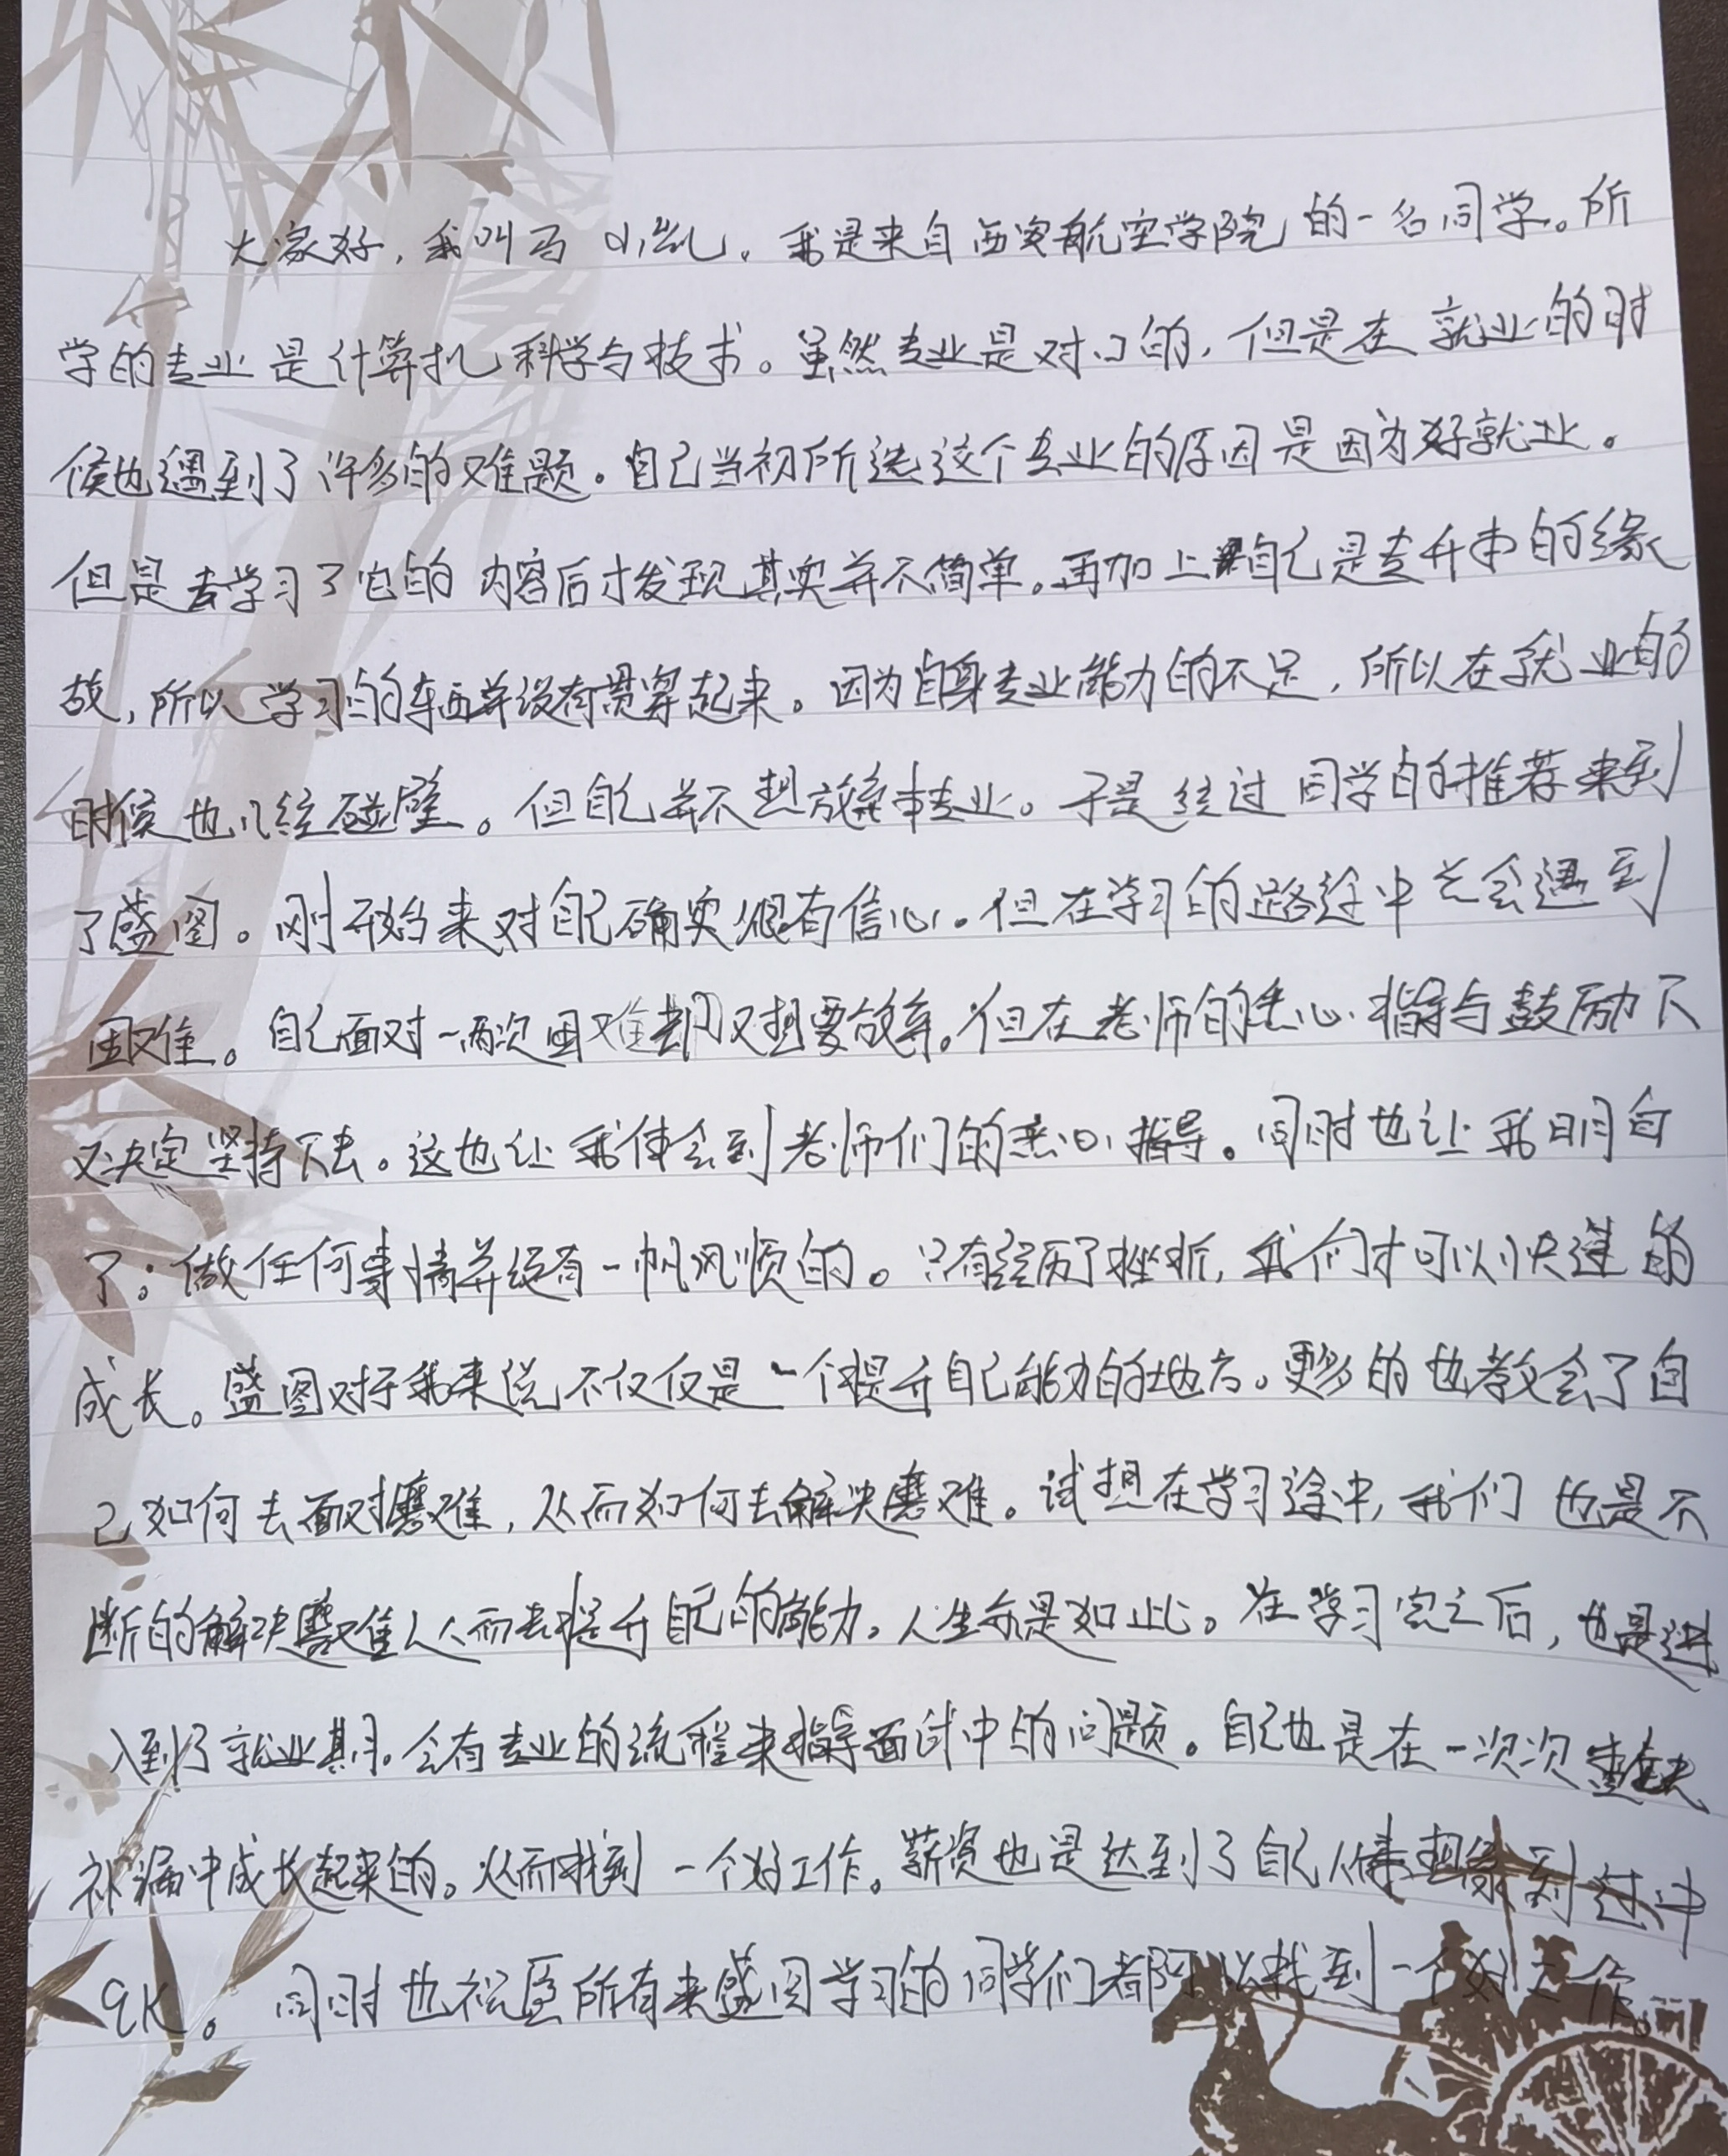 大家好，我叫马小凯。我是来自西安航空学院的一名同学。所
学的专业是计算机科学与技术。虽然专业是对口的，但是在就业的时
候也遇到了许多的难题。自己当初所选这个专业的原因是因为好就业。
但是去学习了它的内容后才发现其实并不简单。再加上自己是专升本的缘
故，所以学习的东西并没有贯穿起来。因为自身专业能力的不足，所以在就业的
时候也几经碰壁。但自己并不想放弃本专业。于是经过同学的推荐来到
了盛图。刚开始来对自己确实很有信心。但在学习的路途中总会遇到
困难。自己面对一两次困难却又想要放弃。但在老师的悉心指导与鼓励下
又决定坚持下去。这也让我体会到老师们的悉心指导。同时也让我明白
了：做任何事情并没有一帆风顺的。只有经历了挫折，我们才可以快速的
成长。盛图对于我来说不仅仅是一个提升自己能力的地方。更多的也教会了自
己如何去面对磨难，从而如何去解决磨难。试想在学习途中，我们也是不
断的解决磨难从而去提升自己的能力。人生亦是如此。在学习完之后，也是进
入到了就业期。会有专业的流程来指导面试中的问题。自己也是在一次次查缺
补漏中成长起来的。从而找到一个好工作。薪资也是达到了自己 到过中
9K。同时也祝愿所有来盛图学习的同学们都可以找到一个好工作。